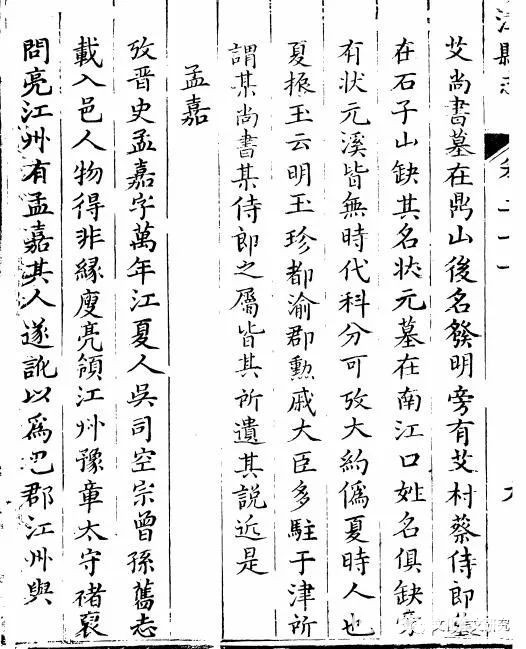 津縣志
卷二十一
艾尚書墓在鼎山後名發明旁有艾村蔡侍郎墓
在石子山缺其名狀元墓在南江口姓名俱缺旁
有狀元溪皆無時代科分可攷大約僞夏時人也
夏振玉云明玉珍都渝郡勲戚大臣多駐于津所
謂某尚書某侍郎之屬皆其所遺其說近是
孟嘉
攷晋史孟嘉字萬年江夏人吳司空宗曾孫舊志
載入邑人物得非緣庾亮領江州豫章太守禇裒
問亮江州有孟嘉其人遂訛以爲巴郡江州與